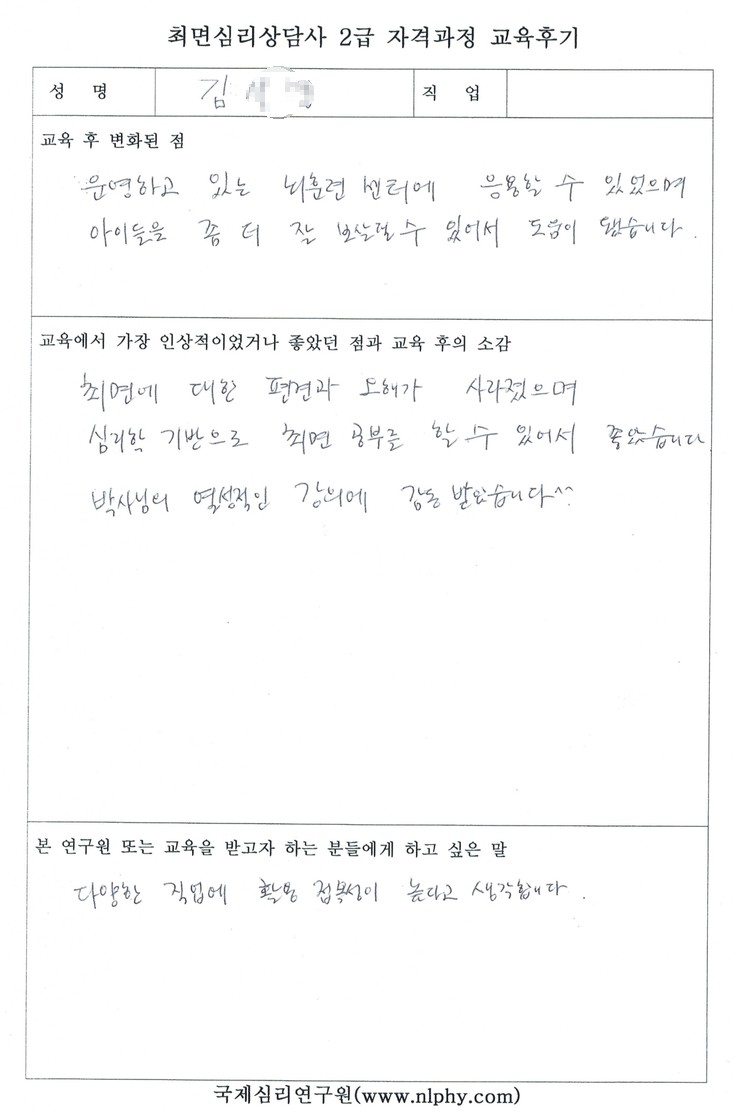 최면심리상담사 2급 자격과정 교육후기
성 명 김 직 업
교육 후 변화된 점
운영하고 있는 뇌훈련 센터에 응용할 수 있었으며
아이들을 좀 더 잘 보살필 수 있어서 도움이 됐습니다.
교육에서 가장 인상적이었거나 좋았던 점과 교육 후의 소감
최면에 대한 편견과 오해가 사라졌으며
심리학 기반으로 최면 공부를 할 수 있어서 좋았습니다
박사님의 열성적인 강의에 감동 받았습니다^^
본 연구원 또는 교육을 받고자 하는 분들에게 하고 싶은 말
다양한 직업에 활용 접목성이 높다고 생각합니다.
국제심리연구원(www.nlphy.com)